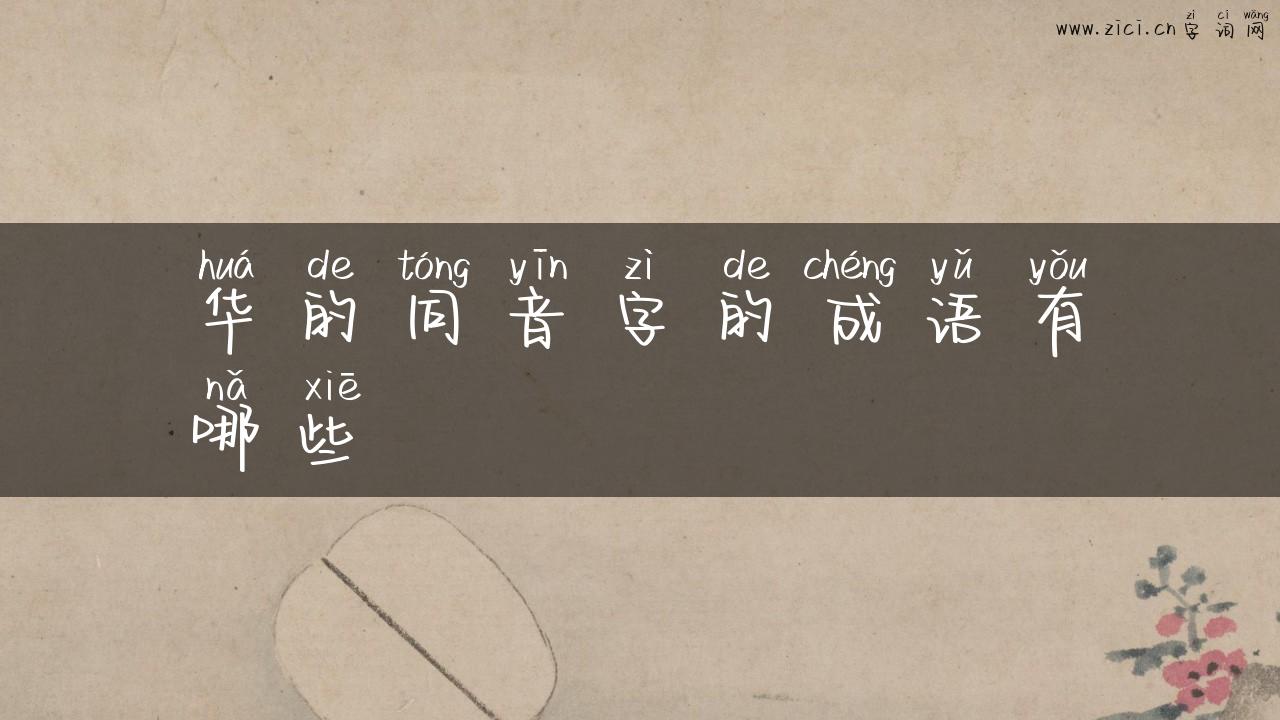 zì cí wǎng
www.zici.cn字词网
huá de tóng yīn zì de chéng yǔ yǒu
华的同音字的成语有
nǎ xiē
哪些